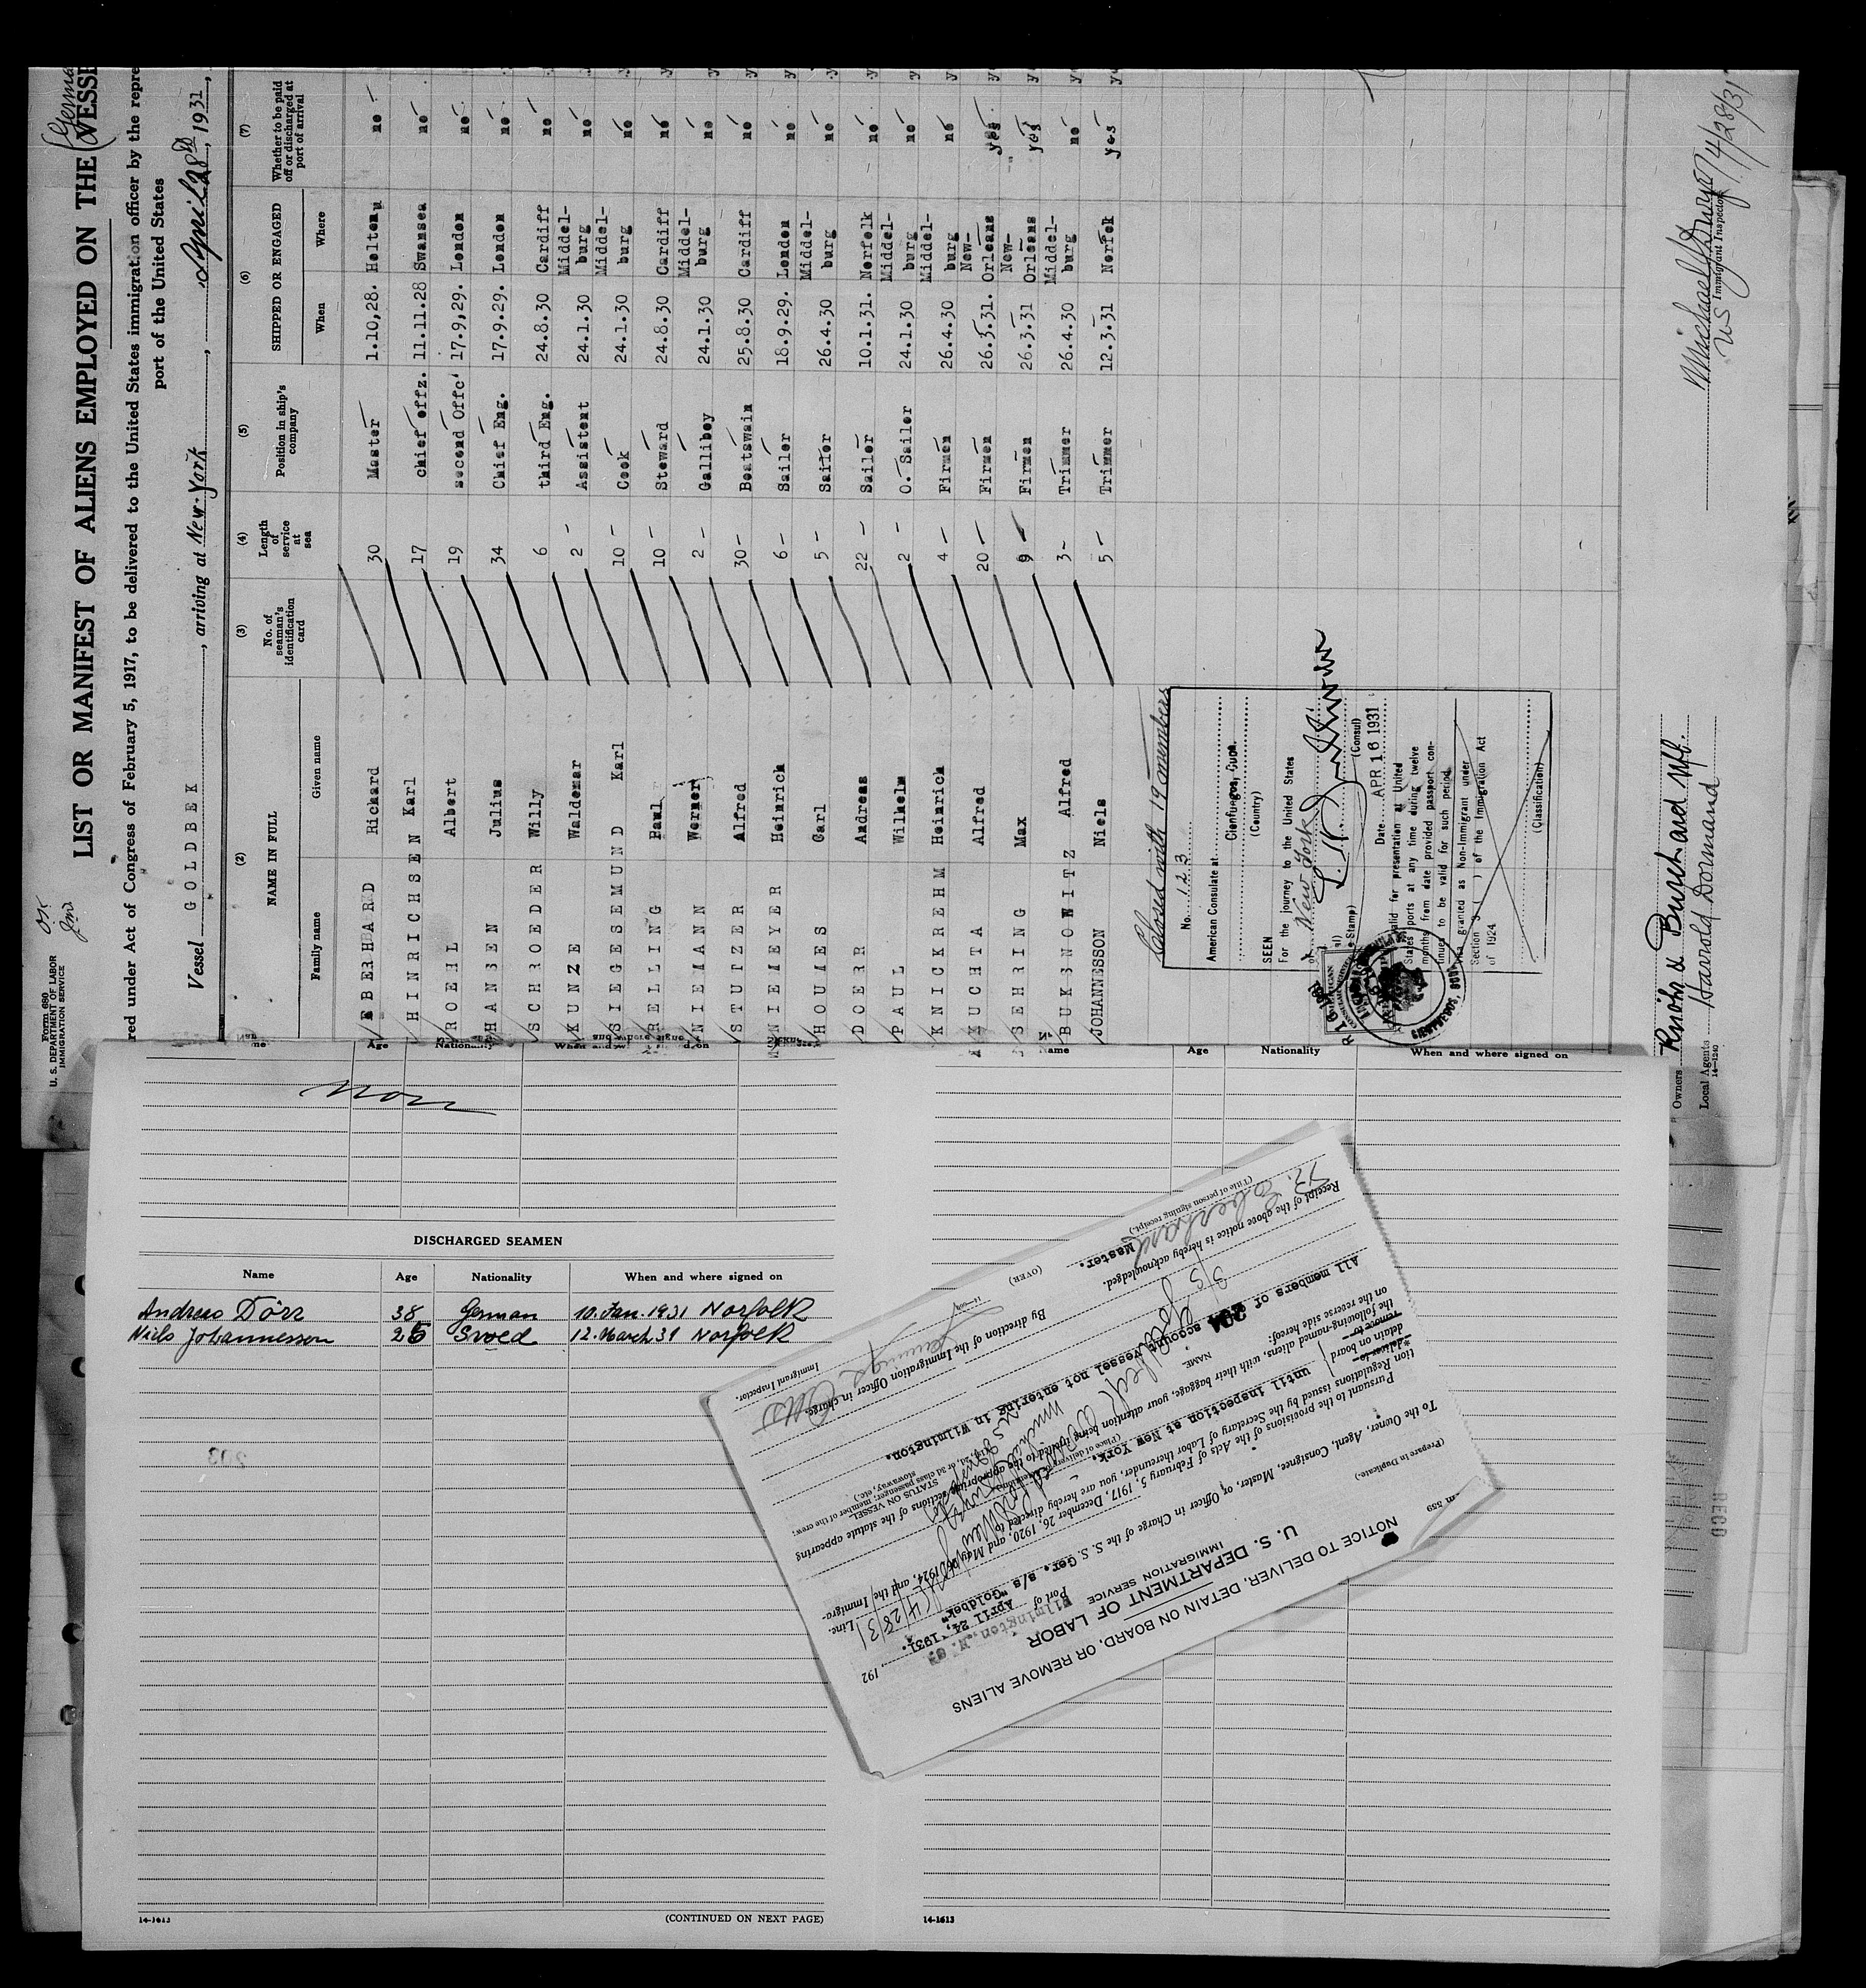 Form 680
U. S. DEPARTMENT OF LABOR
IMMIGRATION SERVICE
LIST OR MANIFEST OF ALIENS EMPLOYED ON THE VESSE
red under Act of Congress of February 5, 1917, to be delivered to the United States immigration officer by the repre
port of the United States
Vessel GOLDBEK, arriving at New-York, April 28th, 1931,
(2) (3) (4) (5) (6) (7)
NAME IN FULL
No. of seaman's identification card
Length of service at sea
Position in ship's company
SHIPPED OR ENGAGED
Whether to be paid off or discharged at port of arrival
Family name Given name When Where
EBERHARD Richard 30 Master 1.10,28. Holtenau no
HINRICHSEN Karl 17 chief offz. 11.11.28 Swansea no
ROEHL Albert 19 second Offc' 17.9,29. London no
HANSEN Julius 34 Chief Eng. 17.9.29. London no
SCHROEDER Willy 6 third Eng. 24.8.30 Cardiff no
KUNZE Waldemar 2 Assistent 24.1.30 Middel-burg no
SIEGESEMUND Karl 10 Cook 24.1.30 Middel-burg no
RELLING Paul 10 Steward 24.8.30 Cardiff no
NIEMANN Werner 2 Galliboy 24.1.30 Middel-burg no
STUTZER Alfred 30 Boatswain 25.8.30 Cardiff no
NIEMEYER Heinrich 6 Sailor 18.9.29. London no
HOUMES Carl 5 Sailor 26.4.30 Middel-burg no
DOERR Andreas 22 Sailor 10.1.31. Norfolk no
PAUL Wilhelm 2 O. Sailor 24.1.30 Middel-burg no
KNICKREHM Heinrich 4 Firmen 26.4.30 Middel-burg no
KUCHTA Alfred 20 Firmen 26.3.31. New-Orleans yes
SEHRING Max 9 Firmen 26.3.31 New-Orleans yes
BUKSNOWITZ Alfred 3 Trimmer 26.4.30 Middel-burg no
JOHANNESSON Niels 5 Trimmer 12.3.31 Norfok yes
Closed with 19 members
No. 123
American Consulate at
Cienfuegos, Cuba.
(Country)
SEEN
For the journey to the United States
New York
(Consul)
Date APR 16 1931
Valid for presentation at United
States ports at any time during twelve
months from date provided passport con-
tinues to be valid for such period.
granted as Non-Immigrant under
Section 3 ( ) of the Immigration Act
of 1924
(Classification)
Owners Knöhr & Burchard Nfl.
Local Agents Harrold Dornand
14-1240
4/28/31
US Immigrant Inspector
Name Age Nationality When and where signed on
DISCHARGED SEAMEN
Name Age Nationality When and where signed on
Andreas Dörr 38 German 10. Jan. 1931 Norfolk
Niels Johannesson 25 Swed 12. March 31 Norfolk
14-1613
(CONTINUED ON NEXT PAGE)
Age Nationality When and where signed on
14-1613
RECD
NOTICE TO DELIVER, DETAIN ON BOARD, OR REMOVE ALIENS
U. S. DEPARTMENT OF LABOR
IMMIGRATION SERVICE
(Prepare in Duplicate)
Port of Wilmington, N. C.
April 24, 1931. 192
To the Owner, Agent, Consignee, Master, or Officer in Charge of the S. S. Ger. s/s "Goldbek" Line.
Pursuant to the provisions of the Acts of February 5, 1917, December 26, 1920, and May 26, 1924, and the Immigra-
tion Regulations issued by the Secretary of Labor thereunder, you are hereby directed to
deliver to
detain on board
remove to
until inspection at New York.
(Place of delivery or detention)
the following-named aliens, with their baggage, your attention being invited to the appropriate sections of the statute appearing
on the reverse side hereof:
NAME
STATUS ON VESSEL
All members of
account vessel not entering in Wilmington.
4/28/31
By direction of the Immigration Officer in charge.
Immigrant Inspector.
(OVER)
Receipt of the above notice is hereby acknowledged.
R. Eberhard
Master.
(Title of person signing receipt.)